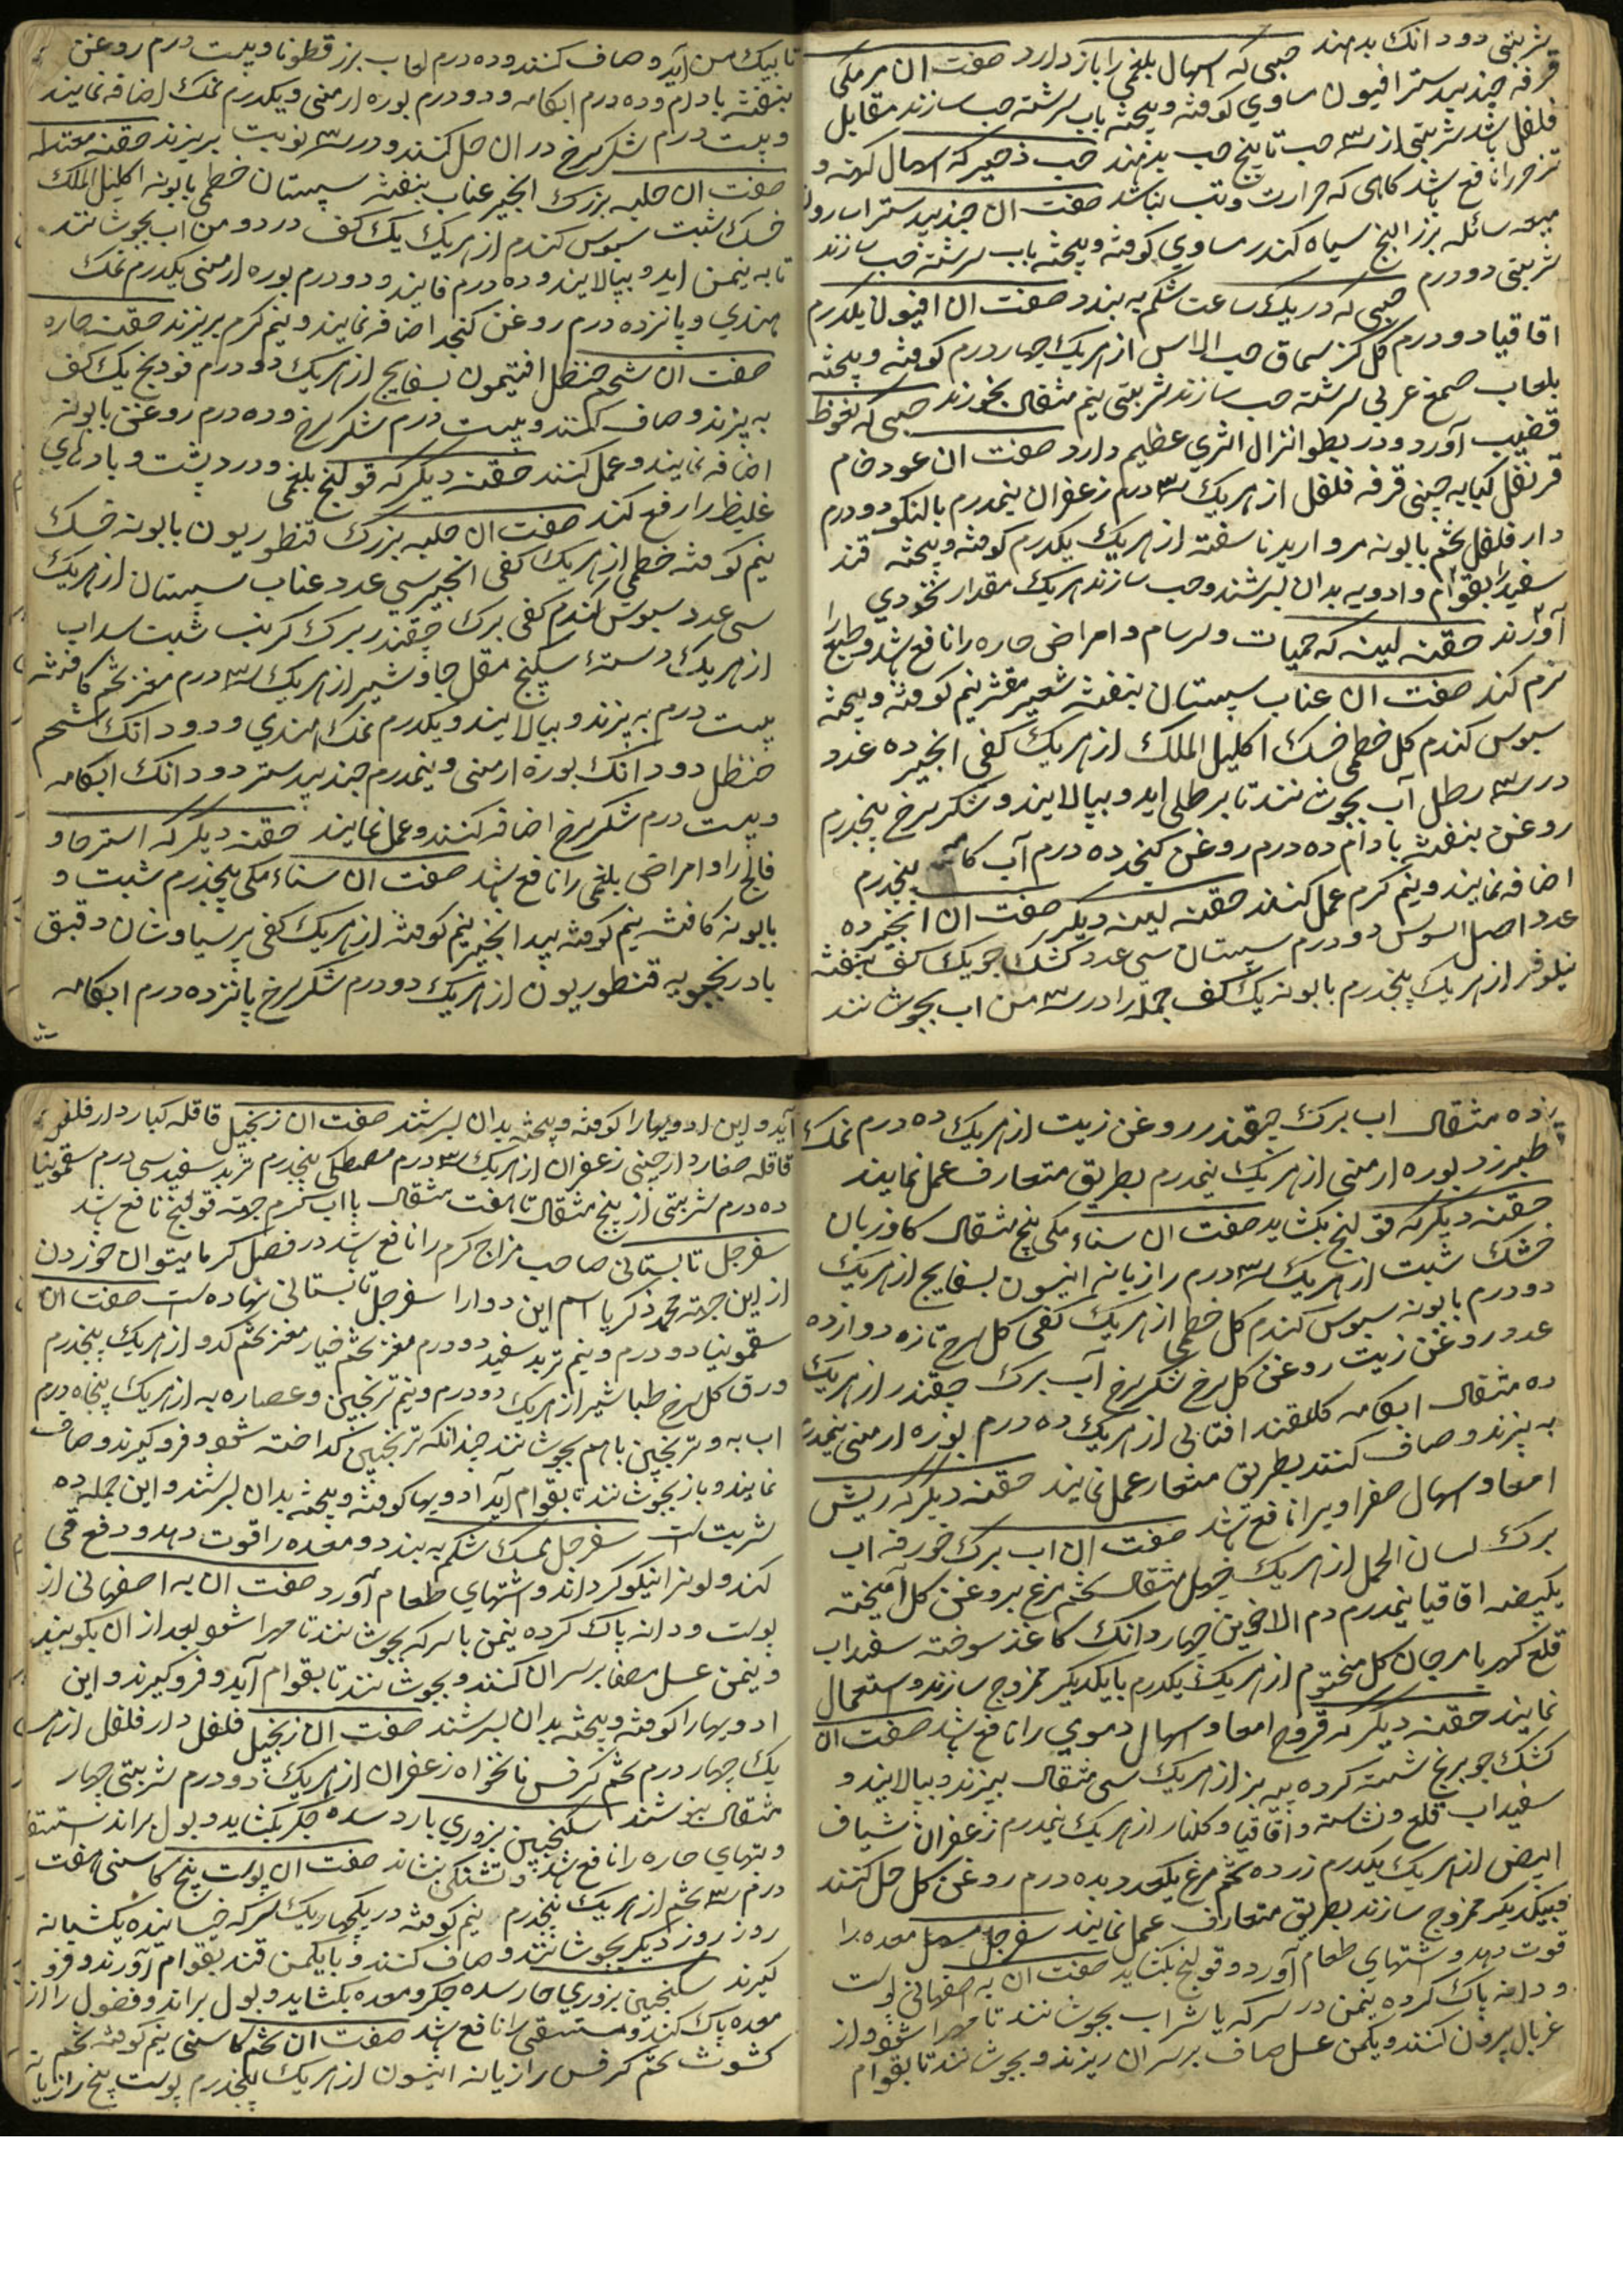 شربتی دو دانک بدهند حبی که اسهال بلغمی را باز دارد صفت ان مر مکی
قرفه جندبیدستر افیون مساوی کوفته و بیخته باب سرشته حب سازند مقابل
فلفل باشد شربتی از سه حب تا پنج حب بدهند حب زحیر که اسهال کهنه و
تزحر را نافع باشد کاهی که حرارت و تب نباشد صفت ان جندبیدستر
میعه سائله بزر البنج سیاه کندر مساوی کوفته و بیخته باب سرشته حب سازند
شربتی دو درم حبی که در یک ساعت شکم به بندد صفت ان افیون یکدرم
اقاقیا دو درم کل کز سماق حب الاس از هریک چهار درم کوفته و بیخته
بلعاب صمغ عربی سرشته حب سازند شربتی نیم مثقال بخورند حبی که نغوظ
قضیب آورد و در بطو انزال اثری عظیم دارد صفت ان عود خام
قرنفل کبابه چینی قرفه فلفل از هریک سه درم زعفران نیمدرم بالنکو دو درم
دار فلفل تخم بابونه مروارید ناسفته از هریک یکدرم کوفته و بیخته قند
سفید را بقوام و ادویه بدان بسرشند و حب سازند هریک مقدار نخودی
آورند حقنه لینه که حمیات و سرسام و امراض حاره را نافع باشد و طبع را
نرم کند صفت ان عناب سپستان بنفشه شعیر مقشر نیم کوفته و بیخته
سبوس کندم کل خطمی خسک اکلیل الملک از هریک کفی انجیر ده عدد
در سه رطل آب بجوشانند تا برطلی اید و بپالایند و شکر سرخ پنجدرم
روغن بنفشه بادام ده درم روغن کنجد ده درم آب کامه پنجدرم
اضافه نمایند و نیم کرم عمل کنند حقنه لینه دیکر صفت ان انجیر ده
عدد اصل السوس دو درم سپستان سی عدد کشک جو یک کف بنفشه
نیلوفر از هریک پنجدرم بابونه یک کف جمله را در سه من اب بجوشانند
تا بیک من آید و صاف کنند و ده درم لعاب بزر قطونا و بیست درم روغن
بنفشه بادام و ده درم ابکامه و دو درم بوره ارمنی و یکدرم نمک اضافه نمایند
و بیست درم شکر سرخ در ان حل کنند و در سه نوبت بریزند حقنه معتدله
صفت ان حلبه بزرک انجیر عناب بنفشه سپستان خطمی بابونه اکلیل الملک
خسک شبت سبوس کندم از هریک یک کف در دو من اب بجوشانند
تا به نیمن اید و بپالایند و ده درم فانید و دو درم بوره ارمنی یکدرم نمک
هندی و پانزده درم روغن کنجد اضافه نمایند و نیم کرم بریزند حقنه حاره
صفت ان شحم حنظل افتیمون بسفایج از هریک دو درم فودنج یک کف
به پزند و صاف کنند و بیست درم شکر سرخ و ده درم روغن بابونه
اضافه نمایند و عمل کنند حقنه دیکر که قولنج بلغمی و درد پشت و بادهای
غلیظ را رفع کند صفت ان حلبه بزرک قنطوریون بابونه خسک
نیم کوفته خطمی از هریک کفی انجیر سی عدد عناب سپستان از هریک
سی عدد سبوس کندم کفی برک چقندر برک کرنب شبت سداب
از هریک دستهٔ سکبنج مقل جاوشیر از هریک سه درم مغز تخم کافشه
بیست درم به پزند و بپالایند و یکدرم نمک هندی و دو دانک شحم
حنظل دو دانک بوره ارمنی و نیمدرم جندبیدستر دو دانک ابکامه
و بیست درم شکر سرخ اضافه کنند و عمل نمایند حقنه دیکر که استرخا و
فالج را و امراض بلغمی را نافع باشد صفت ان سناء مکی پنجدرم شبت و
بابونه کافشه نیم کوفته بیدانجیر نیم کوفته از هریک کفی پرسیاوشان دقیق
بادرنجبویه قنطوریون از هریک دو درم شکر سرخ پانزده درم ابکامه
ده مثقال اب برک چقندر روغن زیت از هریک ده درم نمک
طبرزد بوره ارمنی از هریک نیمدرم بطریق متعارف عمل نمایند
حقنه دیکر که قولنج بکشاید صفت ان سناء مکی پنج مثقال کاوزبان
خشک شبت از هریک سه درم رازیانه انیسون بسفایج از هریک
دو درم بابونه سبوس کندم کل خطمی از هریک کفی کل سرخ تازه دوازده
عدد روغن زیت روغن کل سرخ شکر سرخ آب برک چقندر از هریک
ده مثقال ابکامه کلقند افتابی از هریک ده درم بوره ارمنی نیمدرم
به پزند و صاف کنند بطریق متعارف عمل نمایند حقنه دیکر که ریش
امعا و اسهال صفراویرا نافع باشد صفت ان اب برک خورفه اب
برک لسان الحمل از هریک چهل مثقال تخم مرغ بروغن کل آمیخته
یکبیضه اقاقیا نیمدرم دم الاخوین چهار دانک کاغذ سوخته سفیداب
قلع کهربا مرجان کل مختوم از هریک یکدرم بایکدیکر ممزوج سازند و استعمال
نمایند حقنه دیکر که قروح امعا و اسهال دموی را نافع باشد صفت ان
کشک جو برنج شسته کرده بریز از هریک سی مثقال بپزند و بپالایند و
سفیداب قلع و نشاسته و اقاقیا و کلنار از هریک نیمدرم زعفران شیاف
ابیض از هریک یکدرم زرده تخم مرغ یکعدد بده درم روغن کل حل کنند
بیکدیکر ممزوج سازند بطریق متعارف عمل نمایند سفرجل مسهل معده را
قوت دهد و اشتهای طعام آورد و قولنج بکشاید صفت ان به اصفهانی پوست
و دانه پاک کرده نیمن در سرکه یا شراب بجوشانند تا مهرا شود و از
غربال بیرون کنند و یکمن عسل صاف برسر ان ریزند و بجوشانند تا بقوام
آید و این ادویهارا کوفته و بیخته بدان بسرشند صفت ان زنجبیل قاقله کبار دار فلفل
قاقله صغار دارچینی زعفران از هریک سه درم مصطکی پنجدرم تربد سفید سی درم سقمونیا
ده درم شربتی از پنج مثقال تا هفت مثقال بااب کرم جهة قولنج نافع باشد
سفرجل تابستانی صاحب مزاج کرم را نافع باشد در فصل کرما میتوان خوردن
از این جهة محمد ذکریا اسم این دوارا سفرجل تابستانی نهاده است صفت ان
سقمونیا دو درم و نیم تربد سفید دو درم مغز تخم خیار مغز تخم کدو از هریک پنجدرم
ورق کل سرخ طباشیر از هریک دو درم و نیم ترنجبین و عصاره به از هریک پنجاه درم
اب به و ترنجبین باهم بجوشانند چندانکه ترنجبین کداخته شود و فروکیرند و صاف
نمایند و باز بجوشانند تا بقوام آید ادویها کوفته و بیخته بدان بسرشند و این جمله ده
شربت است سفرجل ممسک شکم به بندد و معده را قوت دهد و دفع قی
کند و لونرا نیکو کرداند و اشتهای طعام آورد صفت ان به اصفهانی از
پوست و دانه پاک کرده نیمن با سرکه بجوشانند تا مهرا شود بعد از ان بکوبند
و نیمن عسل مصفا برسر ان کنند و بجوشانند تا بقوام آید و فروکیرند و این
ادویهارا کوفته و بیخته بدان بسرشند صفت ان زنجبیل فلفل دار فلفل از هر
یک چهار درم تخم کرفس نانخواه زعفران از هریک دو درم شربتی چهار
مثقال بنوشند سکنجبین بزوری بارد سده جکر بکشاید و بول براند استسقا
و تبهای حاره را نافع باشد و تشنکی بنشاند صفت ان پوست بیخ کاسنی هفت
درم سه تخم از هریک پنجدرم نیم کوفته در یکچهاریک سرکه خیسانده یکشبانه
روز روز دیکر بجوشانند و صاف کنند و بایکمن قند بقوام آورند و فرو
کیرند سکنجبین بزوری حار سده جکر و معده بکشاید و بول براند و فضول را از
معده پاک کند و مستسقی را نافع باشد صفت ان تخم کاسنی نیم کوفته تخم
کشوث تخم کرفس رازیانه انیسون از هریک پنجدرم پوست بیخ رازیانه